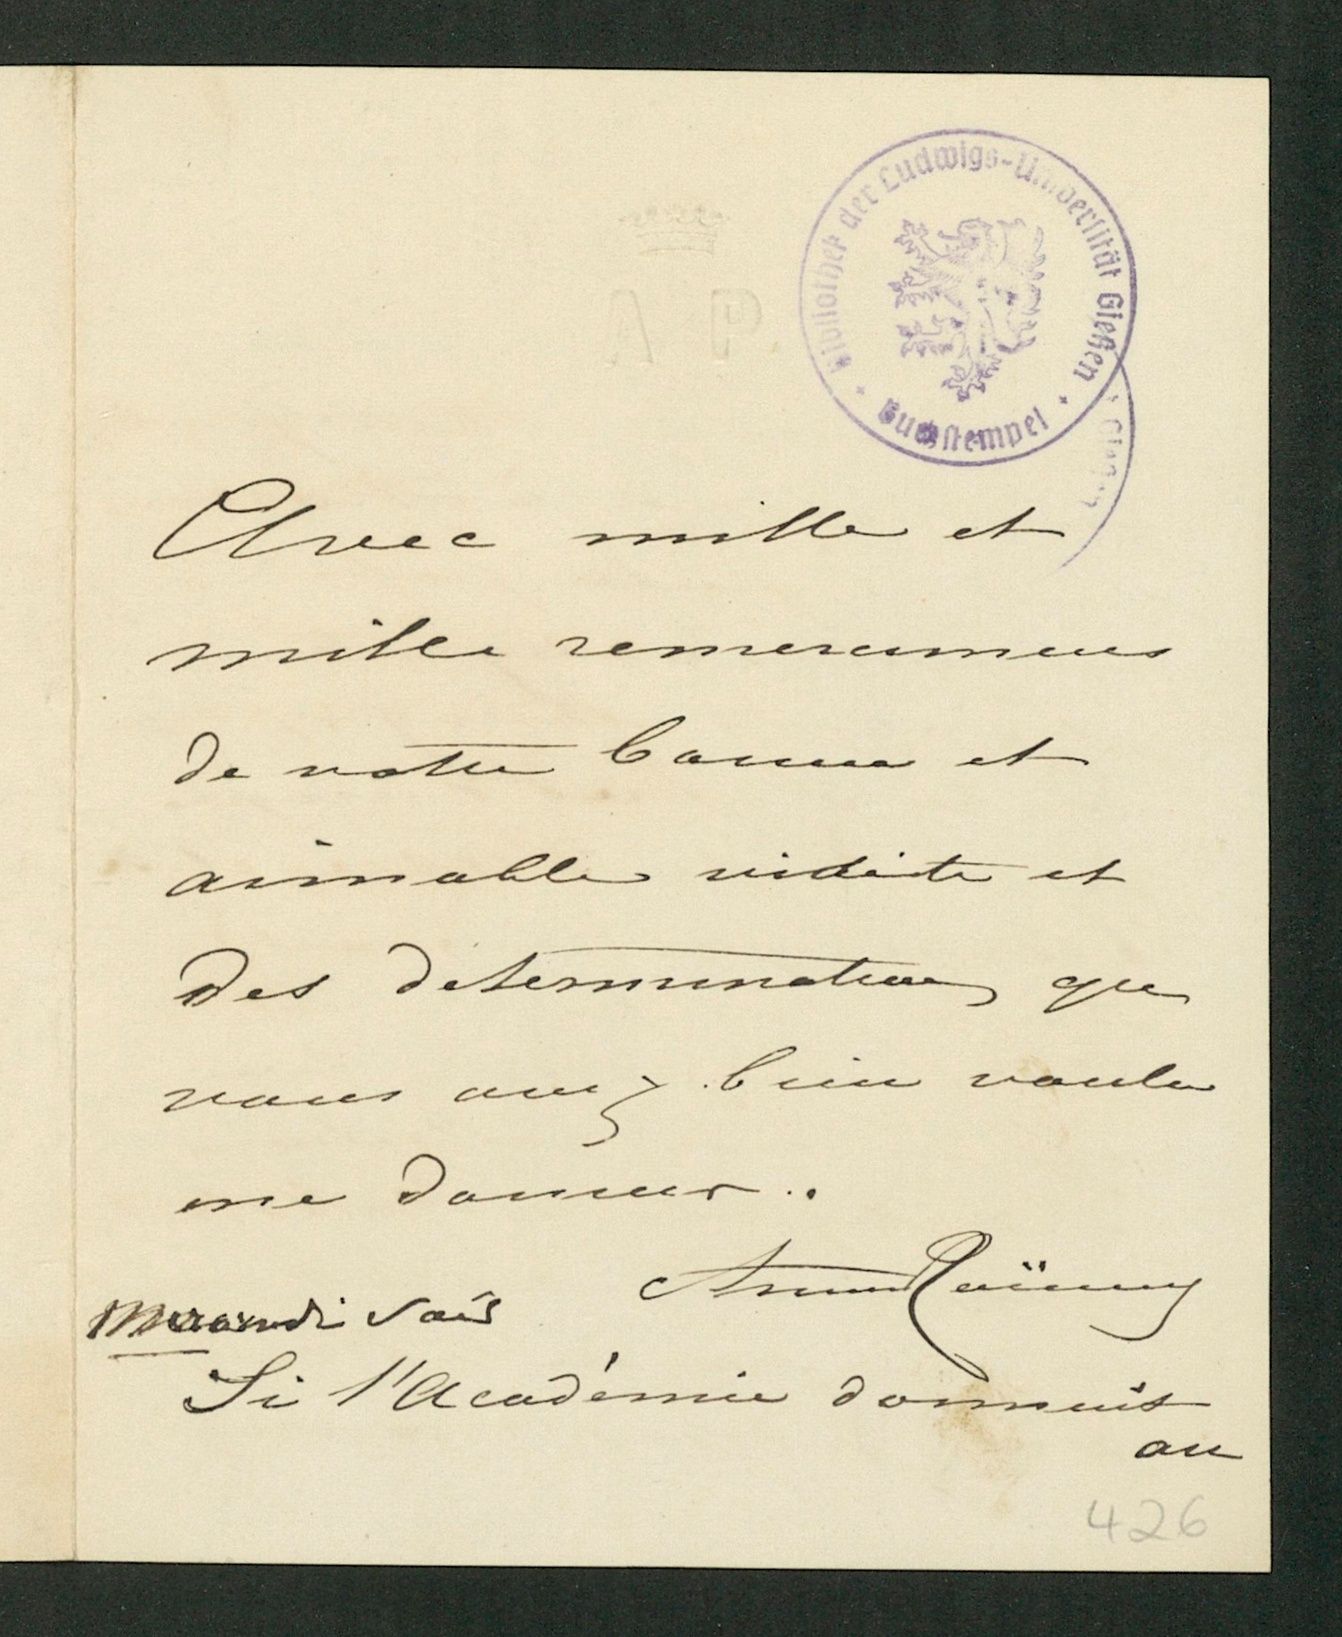 Bibliothek der Ludwigs-Universität Gießen
Buchstempel
P A
Avec mille et
mille remercimens
de votre bonne et
aimable visite et
des determinations que
vous avez bien voulu
me donner.
soir
Si l'Académie donnait
au
426